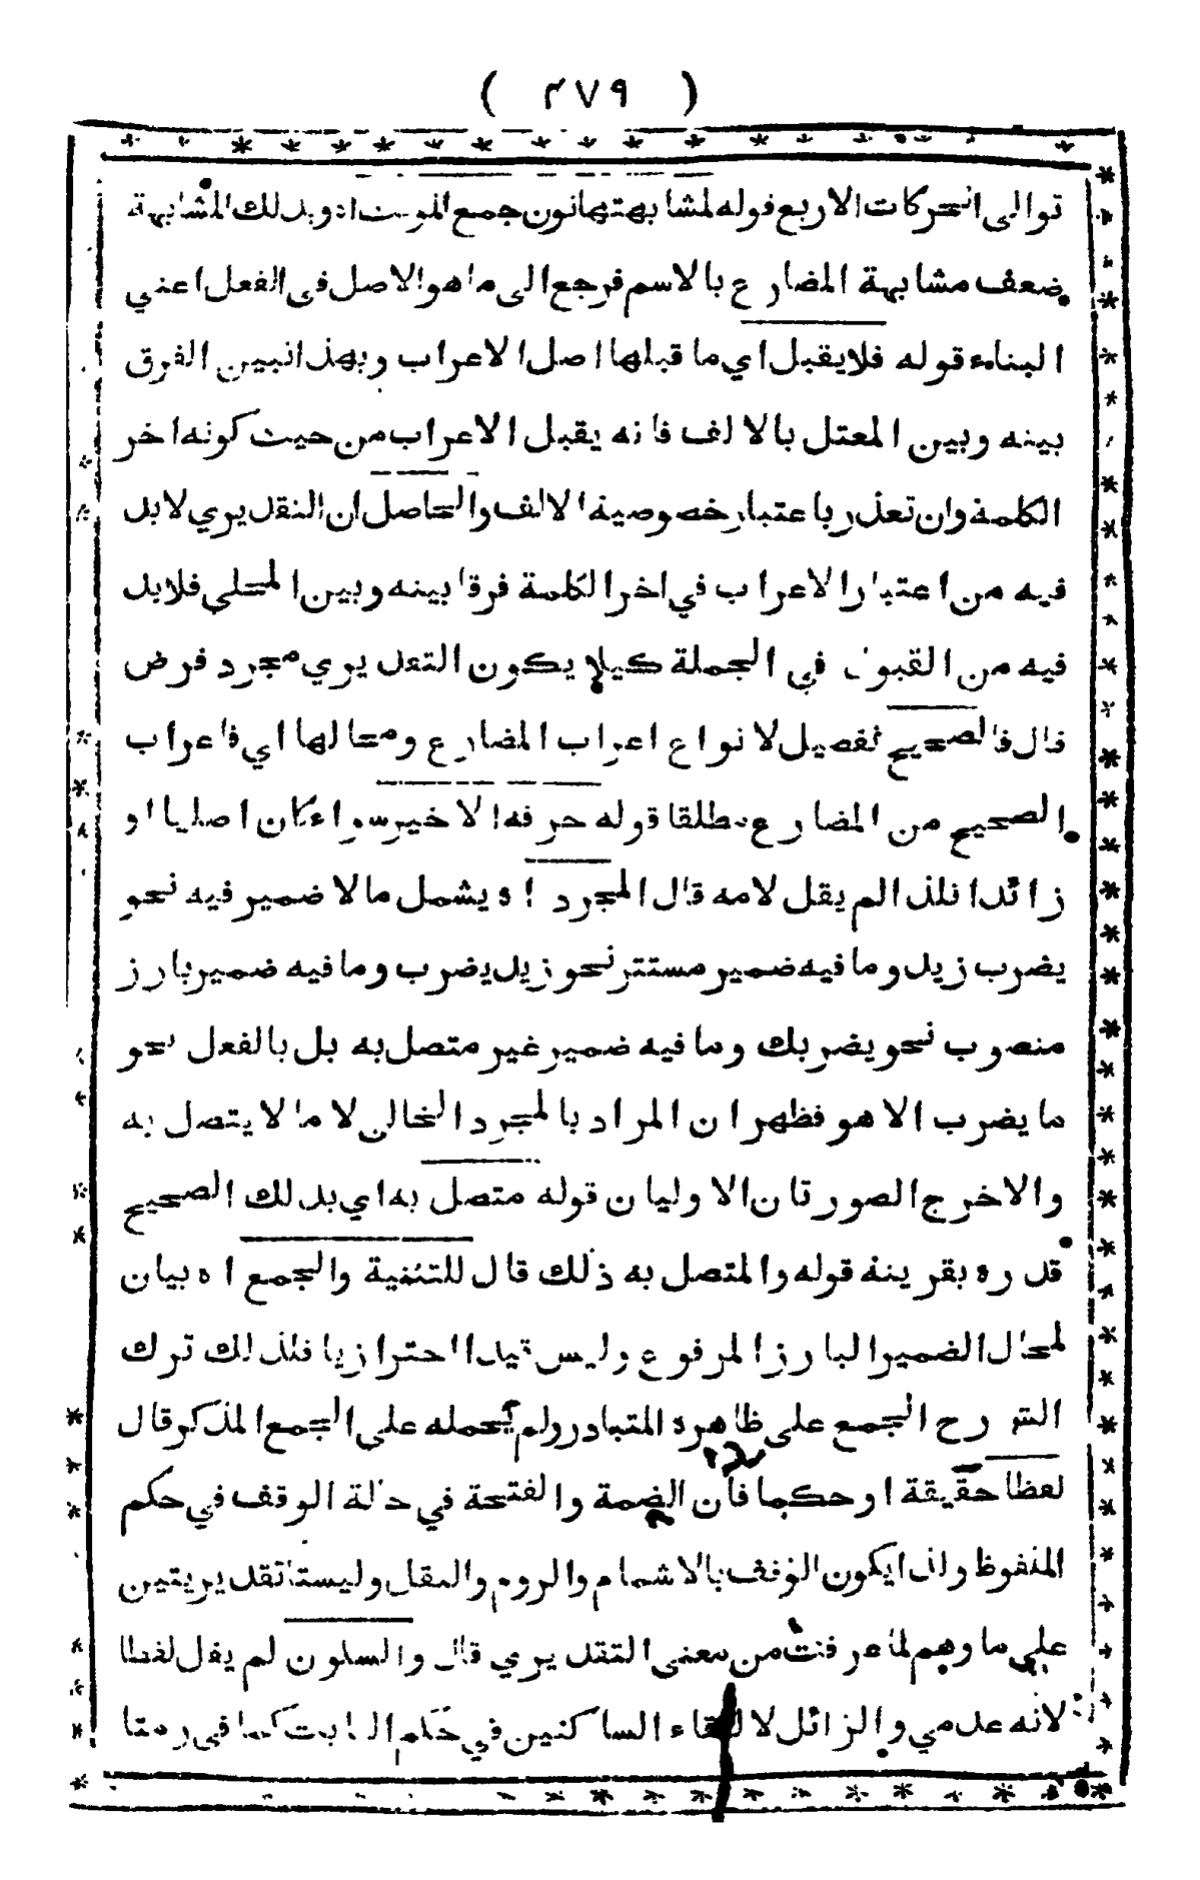 ( ٣٧٩ )
توالى الحركات الاربع قوله لمشابهتها نون جمع المونث اه وبذلك المشابهة
ضعف مشابهة المضارع بالاسم فرجع الى ما هو الاصل فى الفعل اعني
البناء قوله فلا يقبل اي ما قبلها اصل الاعراب وبهذا تبين الفرق
بينه وبين المعتل بالالف فانه يقبل الاعراب من حيث كونه اخر
الكلمة وان تعذر باعتبار خصوصية الالف والحاصل ان التقديري لابد
فيه من اعتبار الاعراب في اخر الكلمة فرقا بينه وبين المحلي فلابد
فيه من القبول في الجملة كيلا يكون التقديري مجرد فرض
قال فالصحيح تفصيل لانواع اعراب المضارع ومحالها اي فاعراب
الصحيح من المضارع مطلقا قوله حرفه الاخير سواء كان اصليا او
زائدا فلذا لم يقل لامه قال المجرد اه يشمل ما لا ضمير فيه نحو
يضرب زيد وما فيه ضمير مستتر نحو زيد يضرب وما فيه ضمير بارز
منصوب نحو يضربك وما فيه ضمير غير متصل به بل بالفعل نحو
ما يضرب الا هو فظهر ان المراد بالمجرد الخالى لا ما لا يتصل به
والا خرج الصورتان الاوليان قوله متصل به اي بذلك الصحيح
قدره بقرينة قوله والمتصل به ذلك قال للتثنية والجمع اه بيان
لمحال الضمير البارز المرفوع وليس قيدا احترازيا فلذلك ترك
الشرح الجمع على ظاهره المتبادر ولم يحمله على الجمع المذكور قال
لفظا حقيقة او حكما فان الضمة والفتحة في حالة الوقف في حكم
الملفوظ ولذا يكون الوقف بالاشمام والروم والنقل وليستا تقديريتين
على ما وهم لما عرفت من معنى التقديري قال والسكون لم يقل لفظا
لانه عدمي والزائل لالتقاء الساكنين في حكم الثابت كما فى رمتا